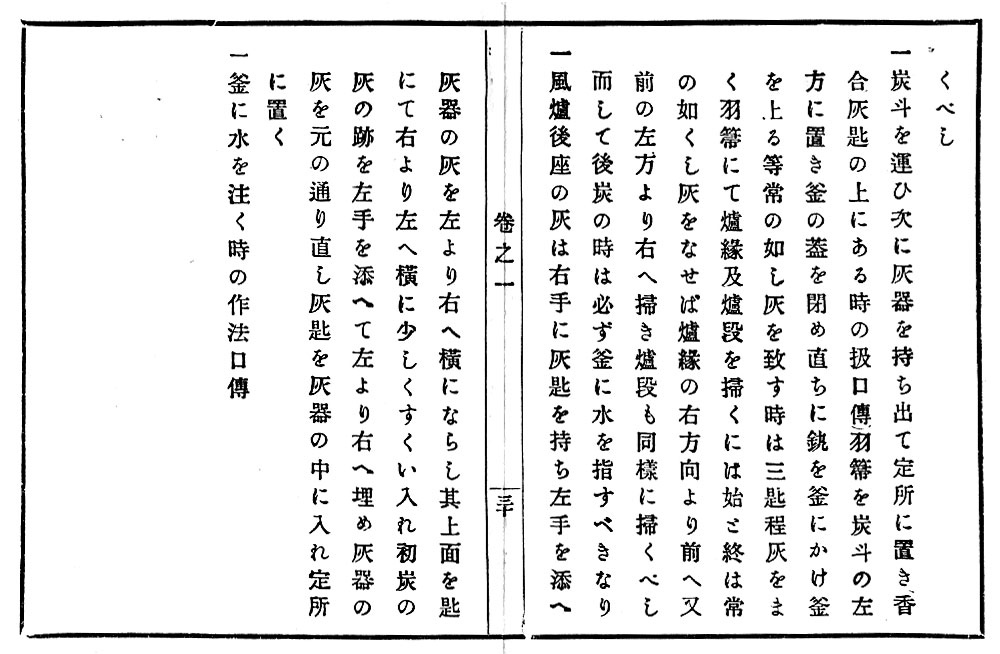 くべし
一炭斗を運ひ次に灰器を持ち出て定所に置き香
合灰匙の上にある時の扱口傳羽箒を炭斗の左
方に置き釜の蓋を閉め直ちに銚を釜にかけ釜
を上る等常の如し灰を致す時は三匙程灰をま
く羽箒にて爐緣及爐段を掃くには始と終は常
の如くし灰をなせば爐緣の右方向より前へ又
前の左方より右へ掃き爐段も同樣に掃くべし
而して後炭の時は必ず釜に水を指すべきなり
一風爐後座の灰は右手に灰匙を持ち左手を添へ
卷之一
三十
灰器の灰を左より右へ橫にならし其上面を匙
にて右より左へ橫に少しくすくい入れ初炭の
灰の跡を左手を添へて左より右へ埋め灰器の
灰を元の通り直し灰匙を灰器の中に入れ定所
に置く
一釜に水を注く時の作法口傳